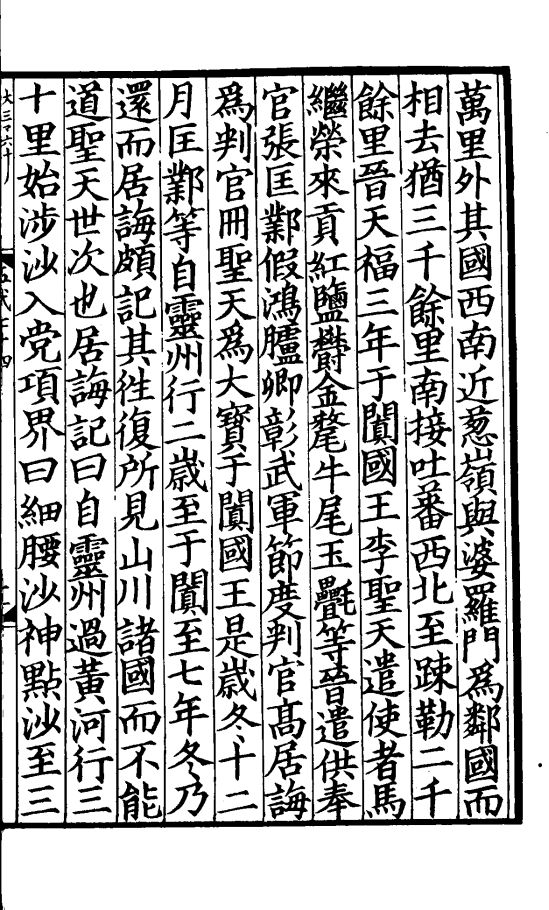 萬里外其國西南近葱嶺與婆羅門爲鄰國而
相去猶三千餘里南接吐蕃西北至踈勒二千
餘里晉天福三年于闐國王李聖天遣使者馬
繼榮來貢紅鹽鬱金氂牛尾玉㲲等晉遣供奉
官張匡鄴假鴻臚卿彰武軍節度判官髙居誨
爲判官冊聖天爲大寳于闐國王是歳冬十二
月匡鄴等自靈州行二歳至于闐至七年冬乃
還而居誨頗記其徃復所見山川諸國而不能
道聖天世次也居誨記曰自靈州過黃河行三
十里始涉沙入党項界曰細腰沙神點沙至三